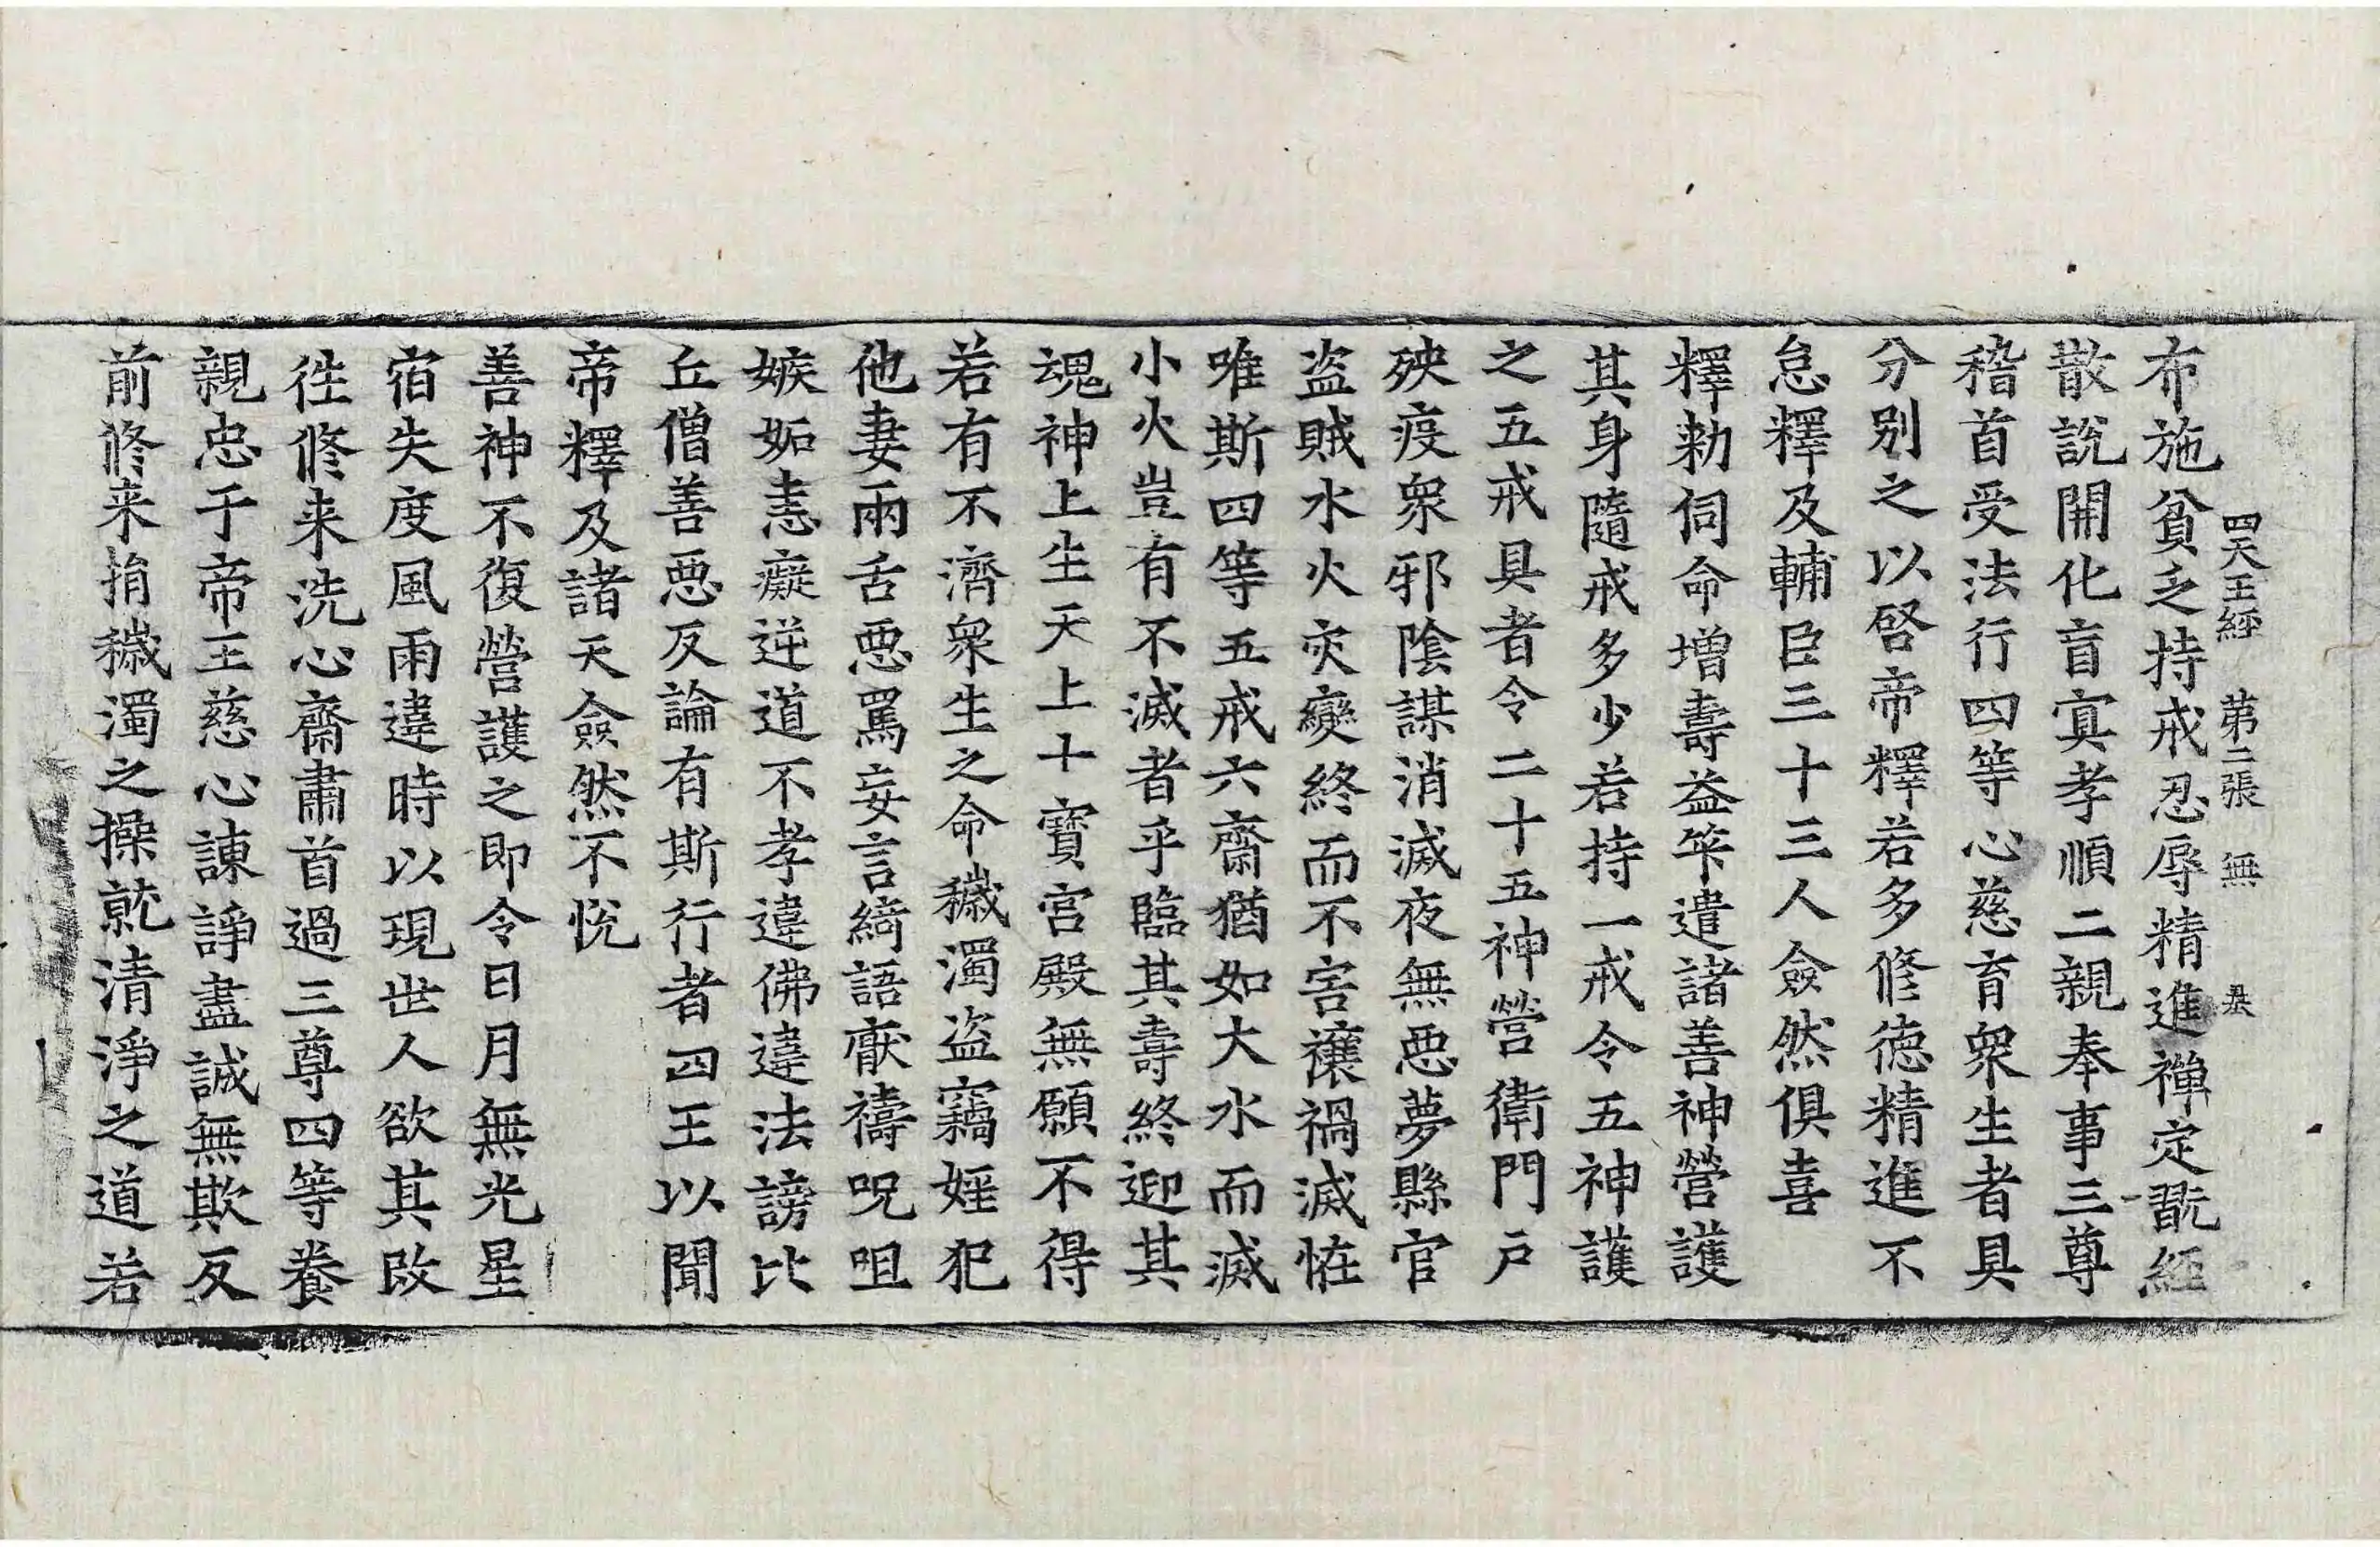 四天王經 第二張 無
布施貧乏持戒忍辱精進禅定翫經
散說開化盲冥孝順二親奉事三尊
稽首受法行四等心慈育衆生者具
分別之以啓帝釋若多修德精進不
怠釋及輔臣三十三人僉然俱喜
釋勅伺命増壽益筭遣諸善神營護
其身隨戒多少若持一戒令五神護
之五戒具者令二十五神營衛門戶
殃疫衆邪陰謀消滅夜無惡夢縣官
盜賊水火灾變終而不害禳禍滅恠
唯斯四等五戒六齋猶如大水而滅
小火豈有不滅者乎臨其壽終迎其
魂神上生天上十寶宮殿無願不得
若有不濟衆生之命穢濁盜竊婬犯
他妻兩舌惡罵妄言綺語猒禱呪咀
嫉妬恚癡逆道不孝違佛違法謗比
丘僧善惡反論有斯行者四王以聞
帝釋及諸天僉然不悅
善神不復營護之即令日月無光星
宿失度風雨違時以現世人欲其改
徃修来洗心齋肅首過三尊四等養
親忠于帝王慈心諫諍盡誠無欺反
前修来捐穢濁之操就清淨之道若